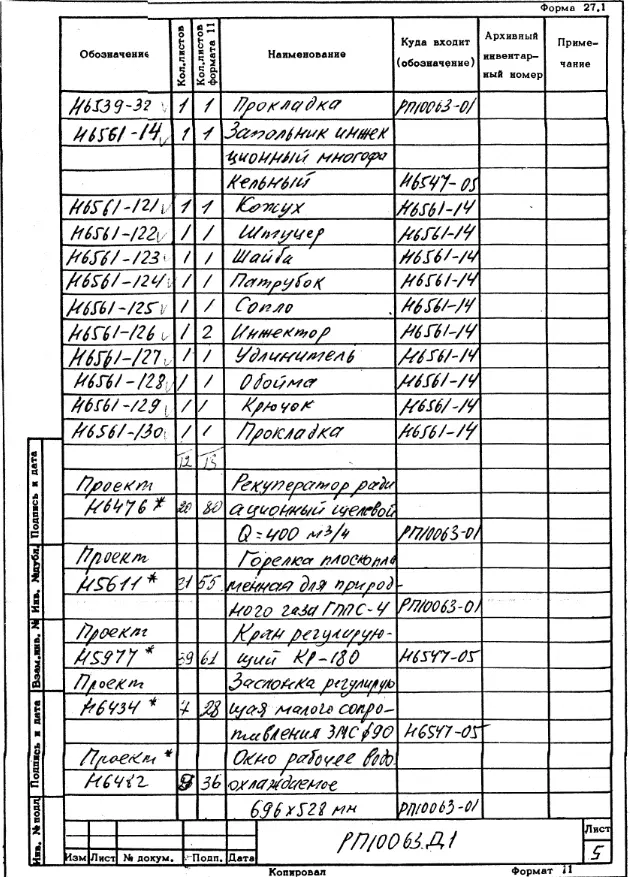 Форма 27.1
Обозначение Кол.листов Кол.листов формата 11 Наименование Куда входит (обозначение) Архивный инвентарный номер Примечание
Н6539-32 1 1 Прокладка РП10063-01
Н6561-14 1 1 Запальник инжек
ционный многофа
кельный Н6547-05
Н6561-121 1 1 Кожух Н6561-14
Н6561-122 1 1 Штуцер Н6561-14
Н6561-123 1 1 Шайба Н6561-14
Н6561-124 1 1 Патрубок Н6561-14
Н6561-125 1 1 Сопло Н6561-14
Н6561-126 1 2 Инжектор Н6561-14
Н6561-127 1 1 Удлинитель Н6561-14
Н6561-128 1 1 Обойма Н6561-14
Н6561-129 1 1 Крючок Н6561-14
Н6561-130 1 1 Прокладка Н6561-14
12 13
Проект Рекуператор ради
Н6476 * 20 80 ационный щелевой
Q=400 м3/ч РП10063-01
Проект Горелка плоскопла
Н5611 * 21 55 менная для природ-
ного газа ГППС-4 РП10063-01
Проект Кран регулирую-
Н5977 * 39 61 щий КР-180 Н6547-05
Проект Заслонка регулирую
Н6434 * 7 28 щая малого сопро-
тивления ЗМС ϕ90 Н6547-05
Проект * Окно рабочее водо
36 охлаждаемое
696х528 мм РП10063-01
РП10063.Д1
Лист
5
Изм Лист № докум. Подп. Дата
Копировал Формат 11
Инв. № подл Подпись и дата Взам.инв. № Инв. №дубл. Подпись и дата